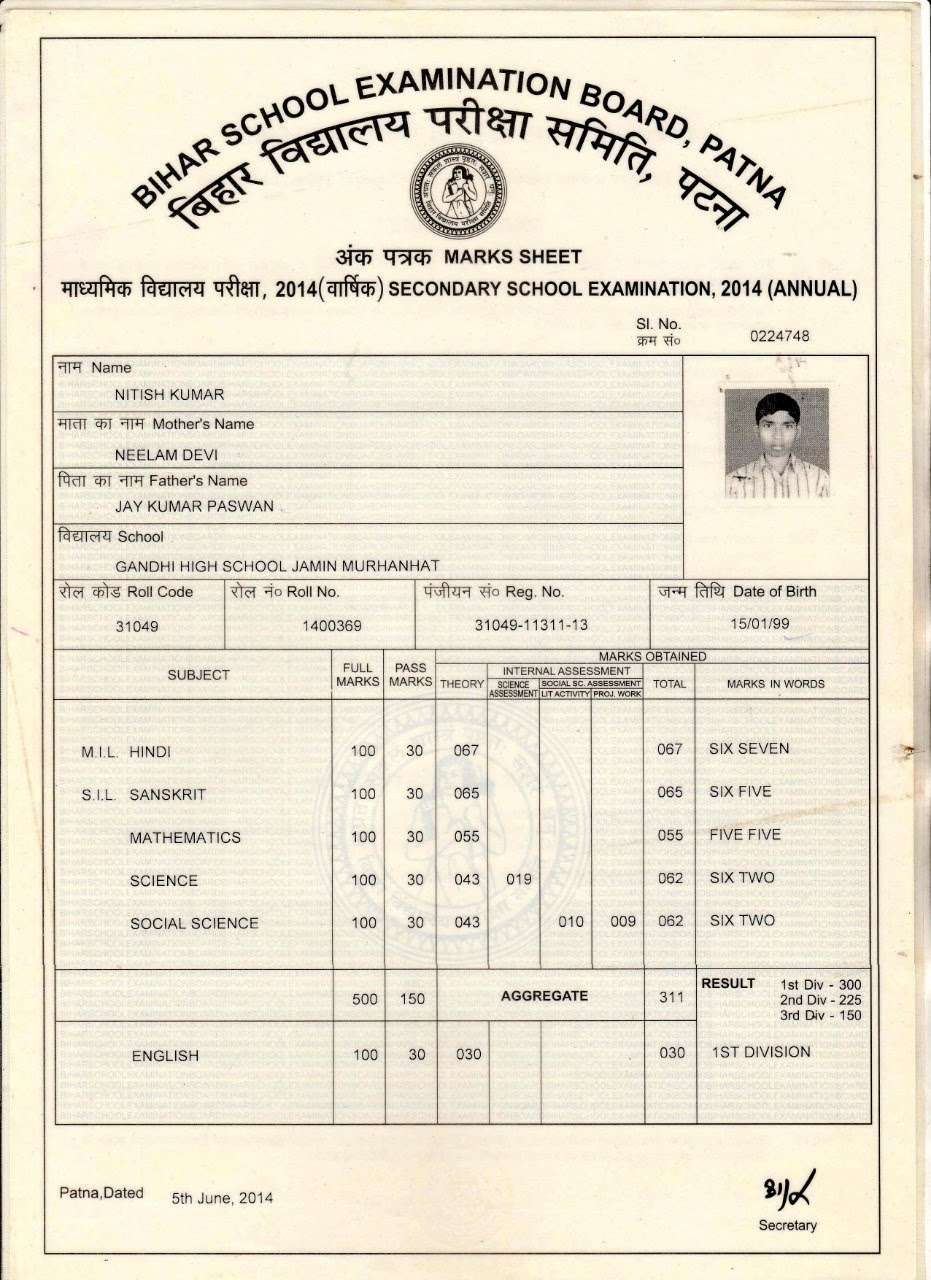 BIHAR SCHOOL EXAMINATION BOARD, PATNA
बिहार विद्यालय परीक्षा समिति, पटना
अंक पत्रक MARKS SHEET
माध्यमिक विद्यालय परीक्षा, 2014(वार्षिक) SECONDARY SCHOOL EXAMINATION, 2014 (ANNUAL)
Sl. No.
क्रम सं० 0224748
नाम Name
NITISH KUMAR
माता का नाम Mother's Name
NEELAM DEVI
पिता का नाम Father's Name
JAY KUMAR PASWAN
विद्यालय School
GANDHI HIGH SCHOOL JAMIN MURHANHAT
रोल कोड Roll Code रोल नं० Roll No. पंजीयन सं० Reg. No. जन्म तिथि Date of Birth
31049 1400369 31049-11311-13 15/01/99
SUBJECT FULL MARKS PASS MARKS MARKS OBTAINED
THEORY INTERNAL ASSESSMENT TOTAL MARKS IN WORDS
SCIENCE ASSESSMENT SOCIAL SC. ASSESSMENT
LIT ACTIVITY PROJ. WORK
M.I.L. HINDI 100 30 067 067 SIX SEVEN
S.I.L. SANSKRIT 100 30 065 065 SIX FIVE
MATHEMATICS 100 30 055 055 FIVE FIVE
SCIENCE 100 30 043 019 062 SIX TWO
SOCIAL SCIENCE 100 30 043 010 009 062 SIX TWO
500 150 AGGREGATE 311 RESULT 1st Div - 300
2nd Div - 225
3rd Div - 150
ENGLISH 100 30 030 030 1ST DIVISION
Patna,Dated 5th June, 2014
Secretary